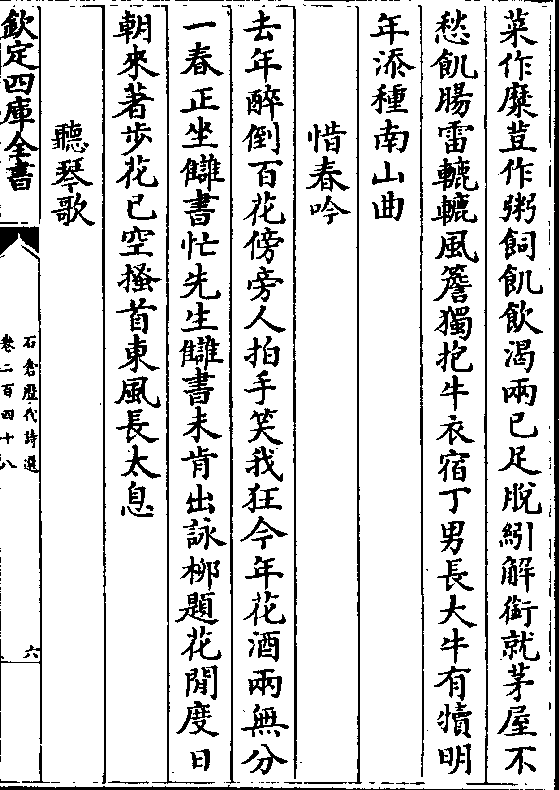 菜作糜荳作粥飼飢飲渴兩已足脫紖解銜就茅屋不
愁飢腸雷轆轆風簷獨抱牛衣宿丁男長大牛有犢明
年添種南山曲
惜春吟
去年醉倒百花傍旁人拍手笑我狂今年花酒兩無分
一春正坐讎書忙先生讎書未肯出詠桺題花閒度日
朝來著步花已空搔首東風長太息
聽琴歌
欽定四庫全書
石倉歷代詩選
卷二百四十八
六